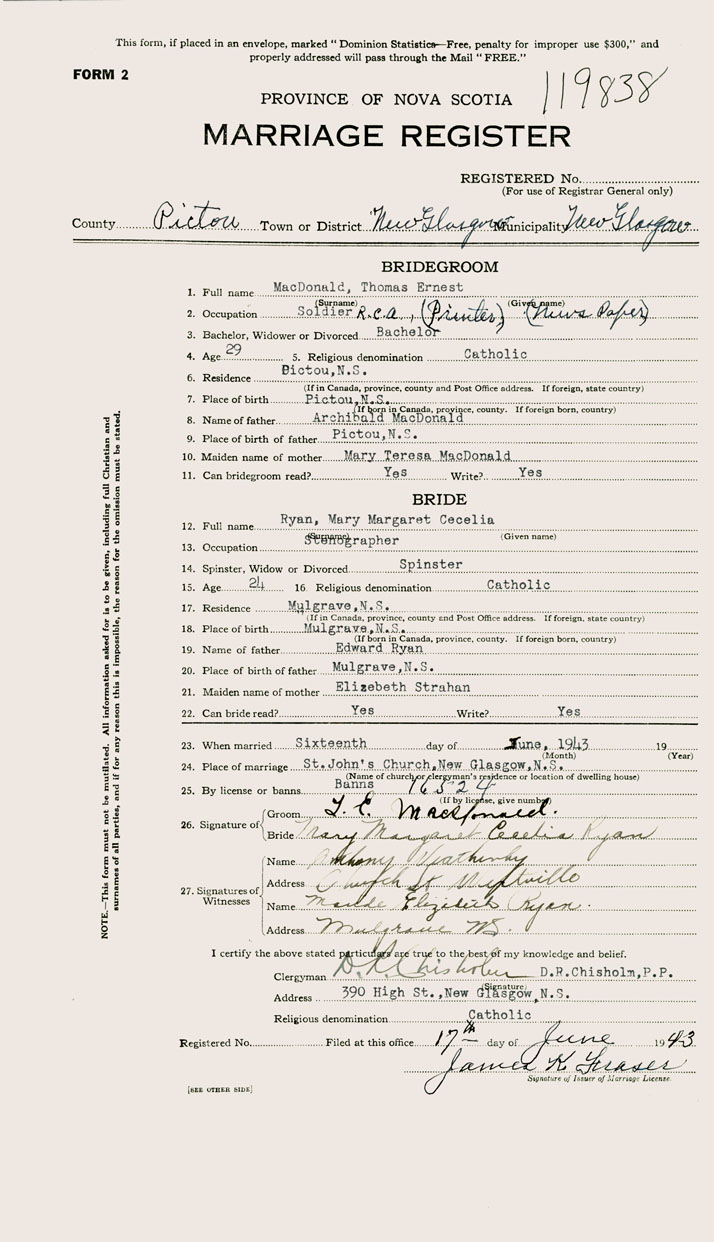 This form, if placed in an envelope, marked "Dominion Statistics—Free, penalty for improper use $300," and
properly addressed will pass through the Mail "FREE."
FORM 2
119838
PROVINCE OF NOVA SCOTIA
MARRIAGE REGISTER
REGISTERED No.
(For use of Registrar General only)
County Pictou Town or District New Glasgow Municipality New Glasgow
BRIDEGROOM
1. Full name MacDonald, Thomas Ernest
(Surname) (Given name)
2. Occupation Soldier R.C.A., (Printer) (News Paper)
3. Bachelor, Widower or Divorced Bachelor
4. Age 29 5. Religious denomination Catholic
6. Residence Pictou,N.S.
(If in Canada, province, county and Post Office address. If foreign, state country)
7. Place of birth Pictou,N.S.
(If born in Canada, province, county. If foreign born, country)
8. Name of father Archibald MacDonald
9. Place of birth of father Pictou,N.S.
10. Maiden name of mother Mary Teresa MacDonald
11. Can bridegroom read? Yes Write? Yes
BRIDE
12. Full name Ryan, Mary Margaret Cecelia
(Surname) (Given name)
13. Occupation Stenographer
14. Spinster, Widow or Divorced Spinster
15. Age 24 16 Religious denomination Catholic
17. Residence Mulgrave,N.S.
(If in Canada, province, county and Post Office address. If foreign, state country)
18. Place of birth Mulgrave,N.S.
(If born in Canada, province, county. If foreign born, country)
19. Name of father Edward Ryan
20. Place of birth of father Mulgrave,N.S.
21. Maiden name of mother Elizebeth Strahan
22. Can bride read? Yes Write? Yes
23. When married Sixteenth day of June, 1943 19
(Month) (Year)
24. Place of marriage St.John's Church,New Glasgow,N.S.
(Name of church or clergyman's residence or location of dwelling house)
25. By license or banns Banns 16524
(If by license, give number)
26. Signature of Groom T. E. MacDonald.
Bride Mary Margaret Cecelia Ryan
27. Signatures of Witnesses
Name Anthony Weatherby
Address Church St
Name Maude Elizabeth Ryan.
Address Mulgrave NS.
I certify the above stated particulars are true to the best of my knowledge and belief.
Clergyman D.R. Chisholm D.R.Chisholm,P.P.
(Signature)
Address 390 High St.,New Glasgow,N.S.
Religious denomination Catholic
Registered No. Filed at this office 17th day of June 1943
James K Fraser
Signature of Issuer of Marriage License.
[SEE OTHER SIDE]
NOTE.—This form must not be mutilated. All information asked for is to be given, including full Christian and
surnames of all parties, and if for any reason this is impossible, the reason for the omission must be stated.